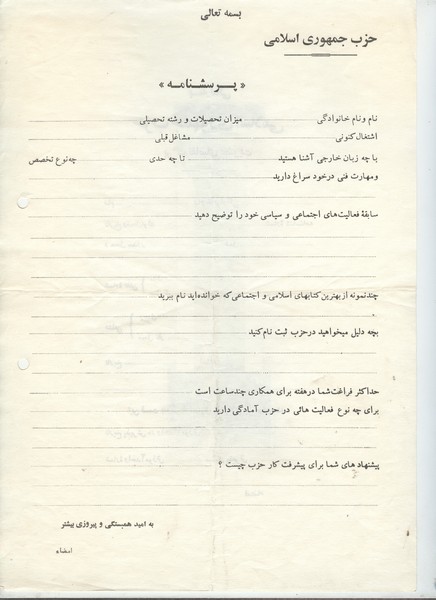 بسمه تعالی
حزب جمهوری اسلامی
« پـرسشنـامـه »
نام ونام خانوادگی میزان تحصیلات و رشته تحصیلی
اشتغال کنونی مشاغل قبلی
با چه زبان خارجی آشنا هستید تا چه حدی چه نوع تخصص
ومهارت فنی درخود سراغ دارید
سابقهٔ فعالیت‌های اجتماعی و سیاسی خود را توضیح دهید
چندنمونه از بهترین کتابهای اسلامی و اجتماعی که خوانده‌اید نام ببرید
بچه دلیل میخواهید درحزب ثبت نام کنید
حداکثر فراغت شما درهفته برای همکاری چندساعت است
برای چه نوع فعالیت هائی در حزب آمادگی دارید
پیشنهاد های شما برای پیشرفت کار حزب چیست ؟
به امید همبستگی و پیروزی بیشتر
امضاء